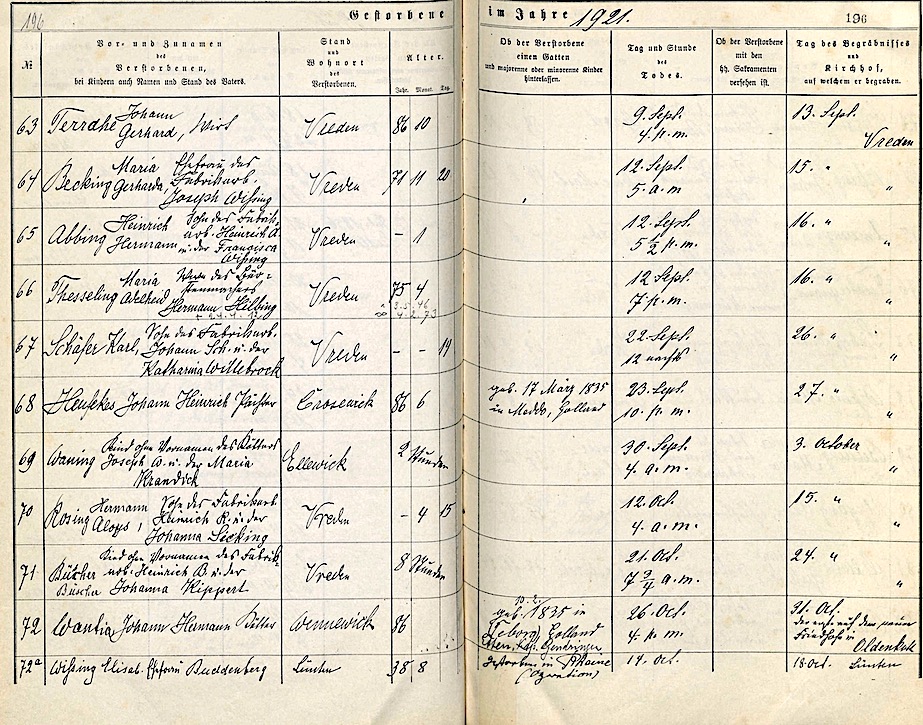 196 Gestorbene im Jahre 1921. 196
№
Vor- und Zunamen
des
Verstorbenen,
bei Kindern auch Namen und Stand des Vaters.
Stand
und
Wohnort
des
Verstorbenen.
Alter.
Jahr. Monat. Tag.
Ob der Verstorbene
einen Gatten
und majorenne oder minorenne Kinder
hinterlassen.
Tag und Stunde
des
Todes.
Ob der Verstorbene
mit den
hh. Sakramenten
versehen ist.
Tag des Begräbnisses
und
Kirchhof,
auf welchem er begraben.
63 Terrahe Johann
Gerhard, Wirt
Vreden 86 10
9. Sept.
4. p. m.
13. Sept.
Vreden
64 Becking Maria Ehefrau des
Gerharda, Fabrikarb.
Joseph Wissing
Vreden 71 11 20
12. Sept.
5. a. m
15. "
"
65 Abbing Heinrich Sohn des Fabrik-
Hermann arb. Heinrich A.
u. der Francisca
Wissing
Vreden – 1
12. Sept.
5 1/2 p. m.
16. "
"
66 Thesseling Maria
Adelheid
Hermann Hilbing
Vreden 75 4
12 Sept.
7 p. m.
16. "
"
67 Schäfer Karl, Sohn des Fabrikarb.
Johann Sch. u. der
Katharina Willebrock
Vreden – – 19
22. Sept.
12 nachts
26. "
"
68 Johann Heinrich Pächter
Crosewick 86 6
geb. 17 März 1835
in Meddo, Holland
23. Sept.
10. p. m.
27. "
"
69 Waning Kind ohne Vornamen des Kötters
Joseph W. u. der Maria
Krandick
Ellewick 2 Stunden
30. Sept.
4. a. m.
3. October
"
70 Rosing Hermann Sohn des Fabrikarb.
Aloys, Heinrich R. u. der
Johanna Sicking
Vreden – 4 15
12. Oct.
4. a. m.
15. "
"
71 Büscher Kind ohne Vornamen des Fabrik-
arb. Heinrich B. u. der
Johanna Kippert
Vreden 8 Stunden
21. Oct.
7 3/4 a. m.
24. "
"
72 Wantia Johann Hermann Kötter
Wennewick 86
geb. 1835 in
Holland
26. Oct.
4. p. m
31. Oct.
der erste auf dem neuen
Friedhofe in
Oldenkott
72a Wissing Elisab. Ehefrau Buddenberg
Lünten 38 8
Gestorben in Rheine
(Operation)
14. Oct.
18. Oct. Lünten